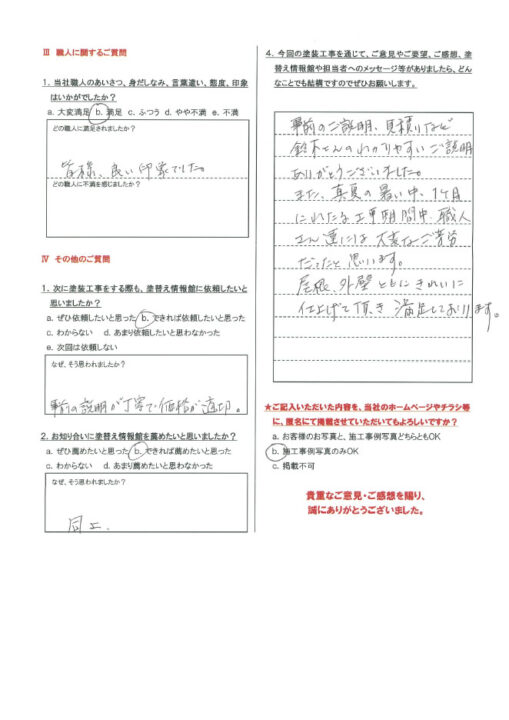 Ⅲ 職人に関するご質問
1. 当社職人のあいさつ、身だしなみ、言葉遣い、態度、印象
はいかがでしたか？
a. 大変満足 b. 満足 c. ふつう d. やや不満 e. 不満
どの職人に満足されましたか？
皆様、良い印象でした。
どの職人に不満を感じましたか？
Ⅳ その他のご質問
1. 次に塗装工事をする際も、塗替え情報館に依頼したいと
思いましたか？
a. ぜひ依頼したいと思った b. できれば依頼したいと思った
c. わからない d. あまり依頼したいと思わなかった
e. 次回は依頼しない
なぜ、そう思われましたか？
事前の説明が丁寧で価格が適切。
2. お知り合いに塗替え情報館を薦めたいと思いましたか？
a. ぜひ薦めたいと思った b. できれば薦めたいと思った
c. わからない d. あまり薦めたいと思わなかった
なぜ、そう思われましたか？
同上。
4. 今回の塗装工事を通じて、ご意見やご要望、ご感想、塗
替え情報館や担当者へのメッセージ等がありましたら、どん
なことでも結構ですのでぜひお願いします。
事前のご説明、見積りなど
鈴木さんのわかりやすいご説明
ありがとうございました。
また、真夏の暑い中、1ヶ月
にわたる工事期間中、職人
さん達には大変なご苦労
だったと思います。
屋根、外壁ともにきれいに
仕上げて頂き満足しております。
★ご記入いただいた内容を、当社のホームページやチラシ等
に、匿名にて掲載させていただいてもよろしいですか？
a. お客様のお写真と、施工事例写真どちらともOK
b. 施工事例写真のみOK
c. 掲載不可
貴重なご意見・ご感想を賜り、
誠にありがとうございました。